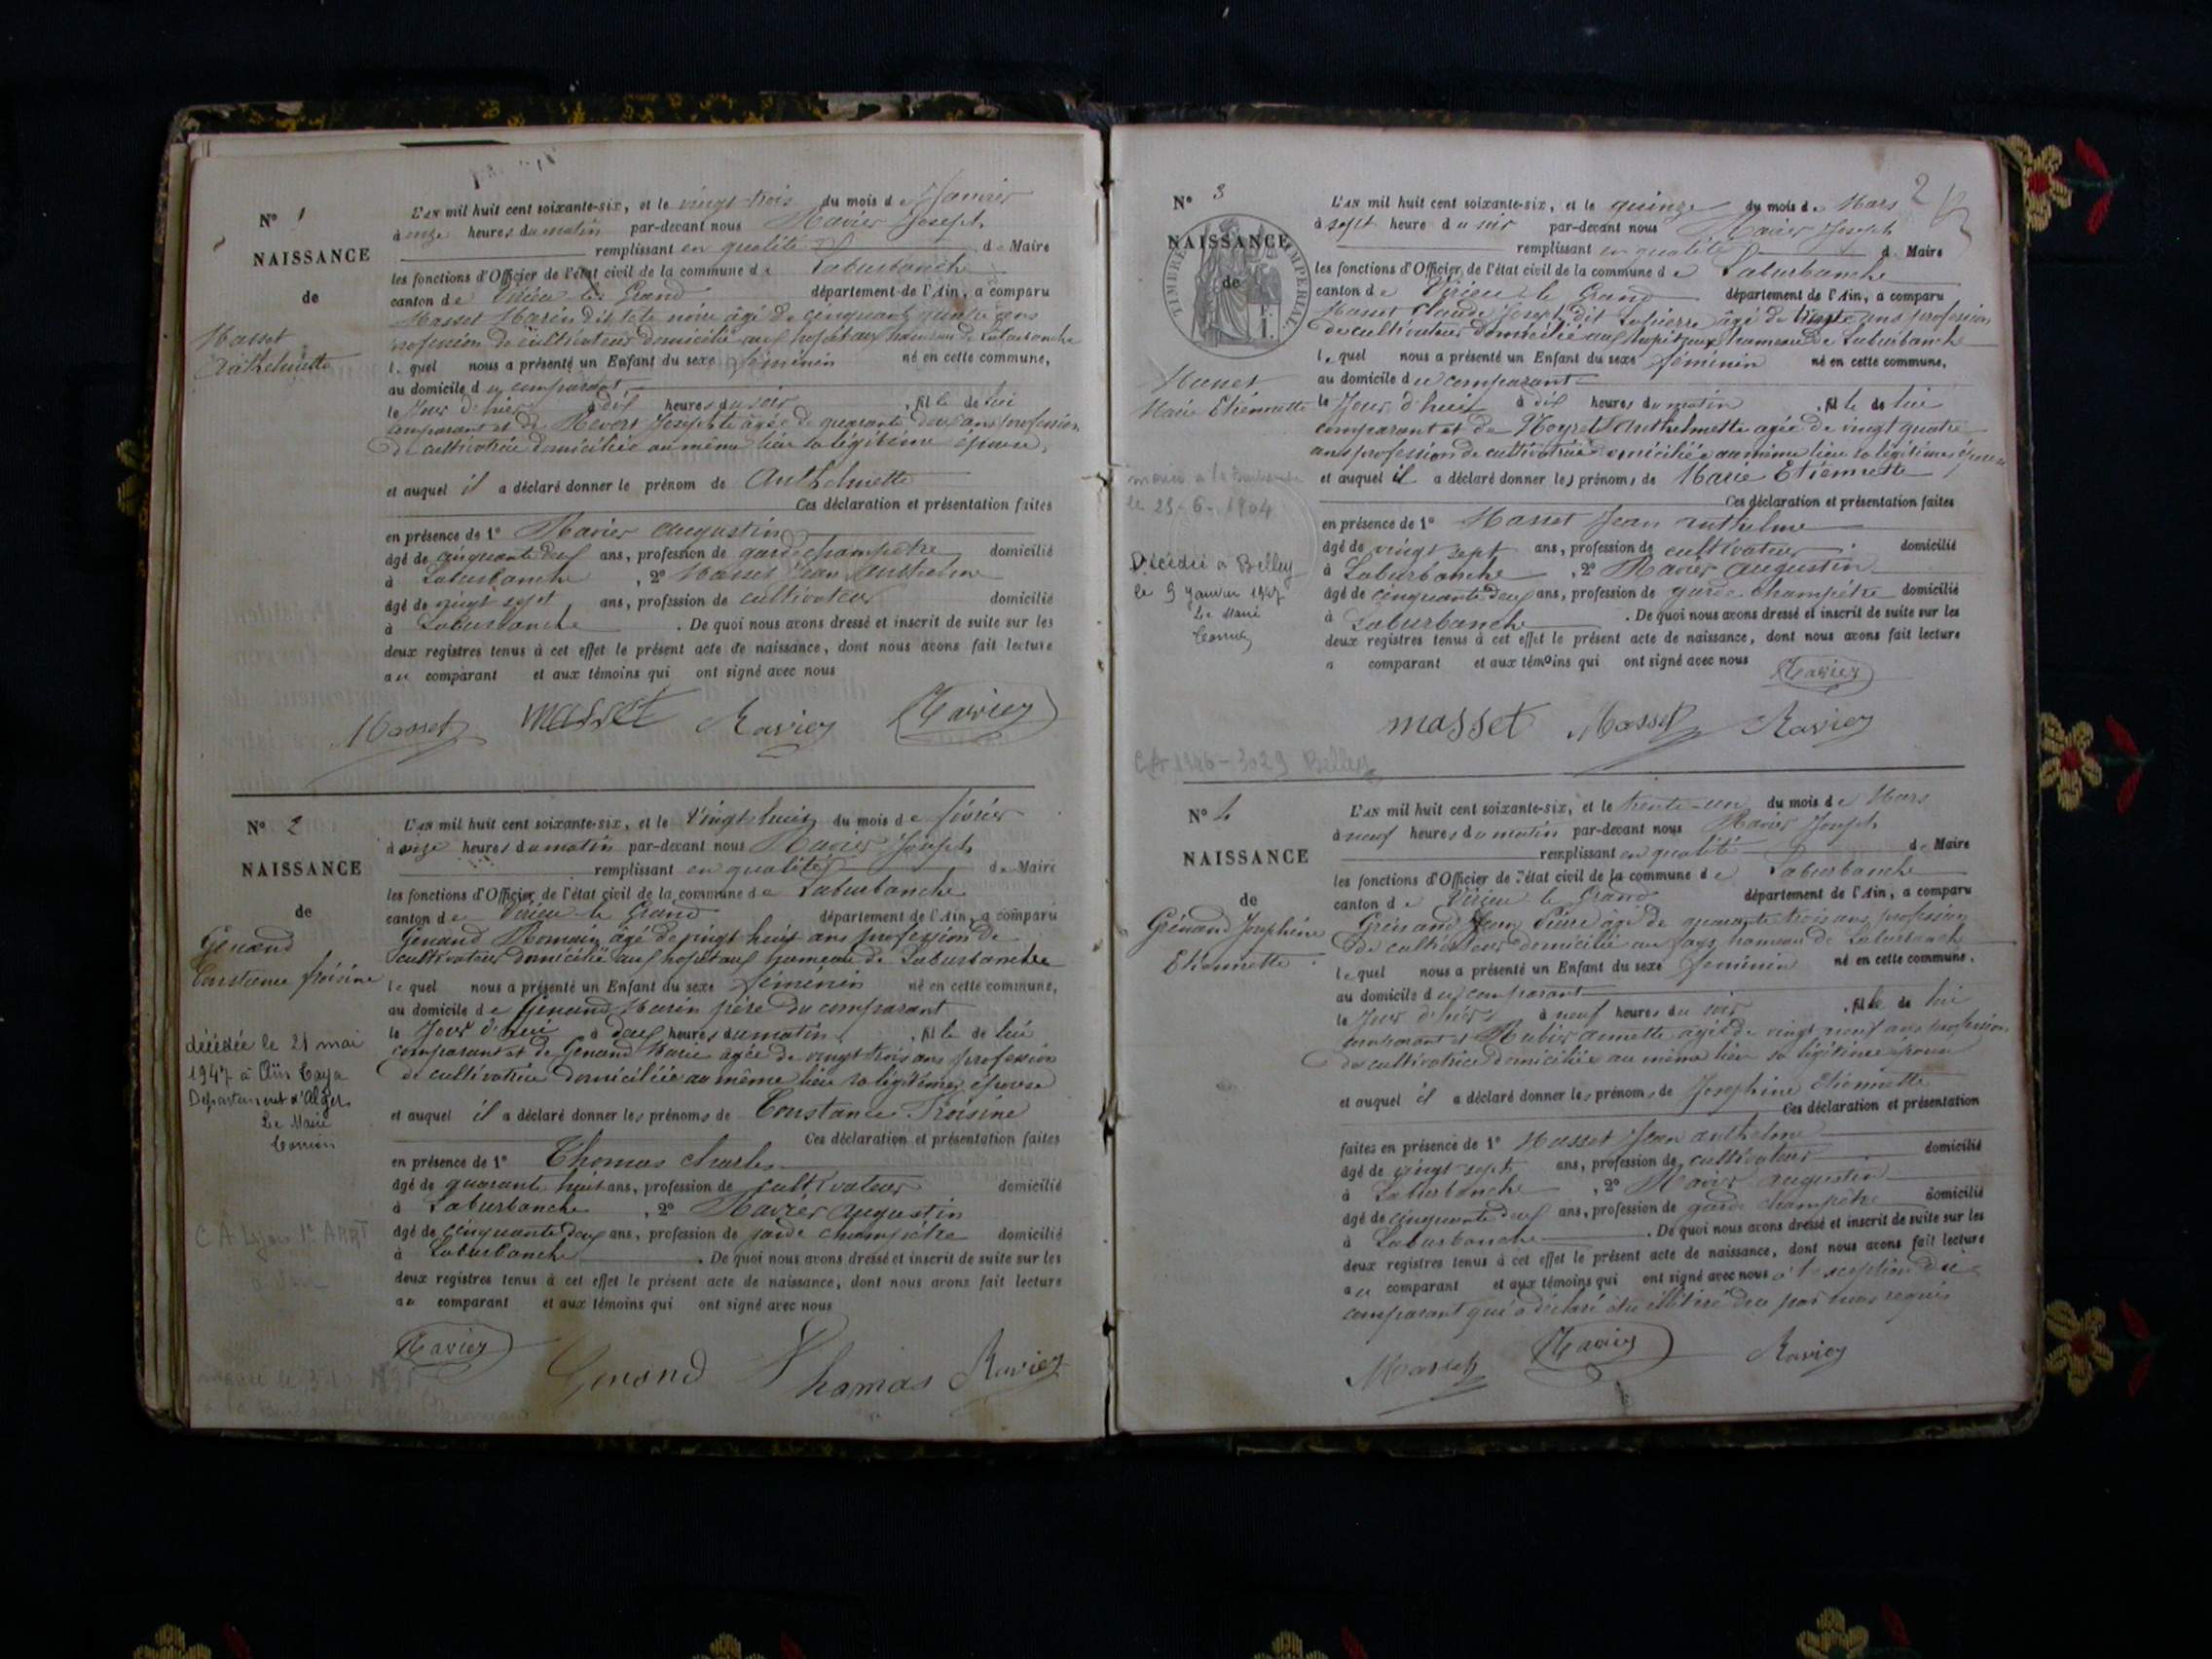 N° 1
NAISSANCE
de
Masset
Anthelmette
L'AN mil huit cent soixante-six, et le vingt trois du mois de Janvier
à onze heures du matin par-devant nous Ravier Joseph
remplissant en qualité de Maire
les fonctions d'Officier de l'état civil de la commune de Laburbanche
canton de Virieu le Grand département de l'Ain, a comparu
Masset Marin dit tete noire âgé de cinquante ans
profession de cultivateur domicilié aux hopitaux hameau de Laburbanche
lequel nous a présenté un Enfant du sexe féminin né en cette commune,
au domicile du comparant
le Jour d'hier à dix heures du soir, fille de lui
comparant et de Josephte âgée de quarante deux ans profession
de cultivatrice domiciliée au même lieu sa légitime épouse,
et auquel il a déclaré donner le prénom de Anthelmette
Ces déclaration et présentation faites
en présence de 1° Ravier Augustin
âgé de cinquante deux ans, profession de garde champêtre domicilié
à Laburbanche, 2° Masset Jean Anthelme
âgé de vingt sept ans, profession de cultivateur domicilié
à Laburbanche. De quoi nous avons dressé et inscrit de suite sur les
deux registres tenus à cet effet le présent acte de naissance, dont nous avons fait lecture
au comparant et aux témoins qui ont signé avec nous
Masset masset Ravier Ravier
N° 2
NAISSANCE
de
Genand
Constance froisine
décédée le 21 mai
1947 à Aïn Taya
Département d'Alger
Le Maire
L'AN mil huit cent soixante-six, et le vingt huit du mois de février
à onze heures du matin par-devant nous Ravier Joseph
remplissant en qualité de Maire
les fonctions d'Officier de l'état civil de la commune de Laburbanche
canton de Virieu le Grand département de l'Ain, a comparu
Genand Romain âgé de vingt huit ans profession de
cultivateur domicilié aux hopitaux hameau de Laburbanche
lequel nous a présenté un Enfant du sexe féminin né en cette commune,
au domicile de Genand Marin père du comparant
le Jour d'hui à deux heures du matin, fille de lui
comparant et de Genand Marie âgée de vingt trois ans profession
de cultivatrice domiciliée au même lieu sa légitime épouse
et auquel il a déclaré donner les prénoms de Constance Froisine
Ces déclaration et présentation faites
en présence de 1° Thomas Charles
âgé de quarante huit ans, profession de cultivateur domicilié
à Laburbanche, 2° Ravier Augustin
âgé de cinquante deux ans, profession de garde champêtre domicilié
à Laburbanche. De quoi nous avons dressé et inscrit de suite sur les
deux registres tenus à cet effet le présent acte de naissance, dont nous avons fait lecture
au comparant et aux témoins qui ont signé avec nous
Ravier Genand Thomas Ravier
2
N° 3
NAISSANCE
de
TIMBRE IMPERIAL
Masset
Marie Etiennette
le 25-6-1904
Décédée à Belley
le 9 Janvier 1947
Le Maire
CA 1946-3029 Belley
L'AN mil huit cent soixante-six, et le quinze du mois de Mars
à sept heure du soir par-devant nous Ravier Joseph
remplissant en qualité de Maire
les fonctions d'Officier de l'état civil de la commune de Laburbanche
canton de Virieu le Grand département de l'Ain, a comparu
Masset Claude Joseph dit Lapierre âgé de trente ans profession
de cultivateur domicilié aux hopitaux hameau de Laburbanche
lequel nous a présenté un Enfant du sexe féminin né en cette commune,
au domicile du comparant
le Jour d'hui à dix heures du matin, fille de lui
comparant et de Anthelmette âgée de vingt quatre
ans profession de cultivatrice domiciliée au même lieu sa légitime épouse
et auquel il a déclaré donner les prénoms de Marie Etiennette
Ces déclaration et présentation faites
en présence de 1° Masset Jean Anthelme
âgé de vingt sept ans, profession de cultivateur domicilié
à Laburbanche, 2° Ravier Augustin
âgé de cinquante deux ans, profession de garde champêtre domicilié
à Laburbanche. De quoi nous avons dressé et inscrit de suite sur les
deux registres tenus à cet effet le présent acte de naissance, dont nous avons fait lecture
a comparant et aux témoins qui ont signé avec nous
Ravier
masset Masset Ravier
N° 4
NAISSANCE
de
Grénand Josephine
Etiennette
L'AN mil huit cent soixante-six, et le trente-un du mois de Mars
à neuf heures du matin par-devant nous Ravier Joseph
remplissant en qualité de Maire
les fonctions d'Officier de l'état civil de la commune de Laburbanche
canton de Virieu le Grand département de l'Ain, a comparu
Grénand Jean Pierre âgé de quarante trois ans, profession
de cultivateur domicilié au hameau de Laburbanche
lequel nous a présenté un Enfant du sexe féminin né en cette commune,
au domicile du comparant
le Jour d'hier à neuf heures du soir, fille de lui
comparant et Annette âgée de vingt neuf ans profession
de cultivatrice domiciliée au même lieu sa légitime épouse
et auquel il a déclaré donner les prénoms de Josephine Etiennette
Ces déclaration et présentation
faites en présence de 1° Masset Jean Anthelme
âgé de vingt sept ans, profession de cultivateur domicilié
à Laburbanche, 2° Ravier Augustin
âgé de cinquante deux ans, profession de garde champêtre domicilié
à Laburbanche. De quoi nous avons dressé et inscrit de suite sur les
deux registres tenus à cet effet le présent acte de naissance, dont nous avons fait lecture
au comparant et aux témoins qui ont signé avec nous à l'exception du
comparant qui a déclaré être illitéré de ce par nous requis
Masset Ravier Ravier